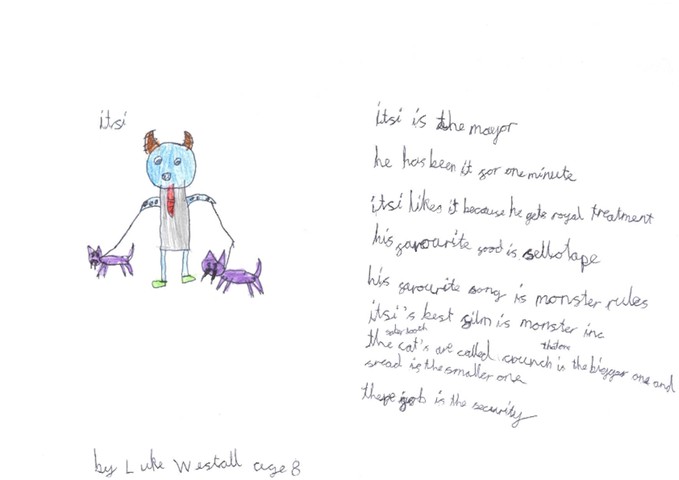 itsi
itsi is the mayor
he has been it for one minute
itsi likes it because he gets royal treatment
his favourite food is sellotape
his favourite song is monster rules
itsi's best film is monster inc
saber tooth
the cat's are called crunch is the bigger one and
fread is the smaller one
there job is the security
by Luke Westall age 8